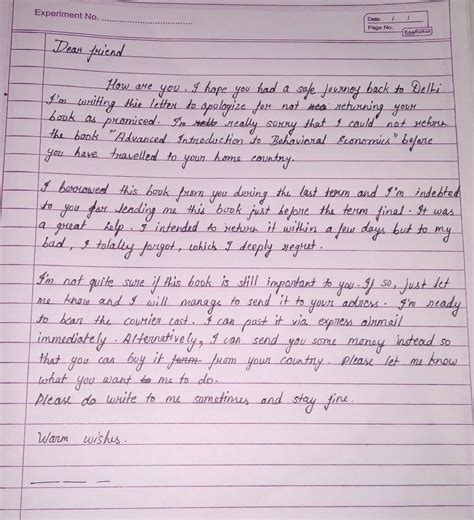 Experiment No.
Date / /
Page No.
Dear friend
How are you. I hope you had a safe journey back to Delhi
I'm writing this letter to apologize for not returning your
book as promised. I'm really sorry that I could not return
the book "Advanced Introduction to Behavioral Economics" before
you have travelled to your home country.
I borrowed this book from you during the last term and I'm indebted
to you for lending me this book just before the term final. It was
a great help. I intended to return it within a few days but to my
bad, I tolalley forgot, which I deeply regret.
I'm not quite sure if this book is still important to you. If so, just let
me know and I will manage to send it to your adress. I'm ready
to bear the courier cost. I can post it via express airmail
immediately. Alternatively, I can send you some money instead so
that you can buy it from your country. Please let me know
what you want me to do.
Please do write to me sometimes and stay fine.
Warm wishes.